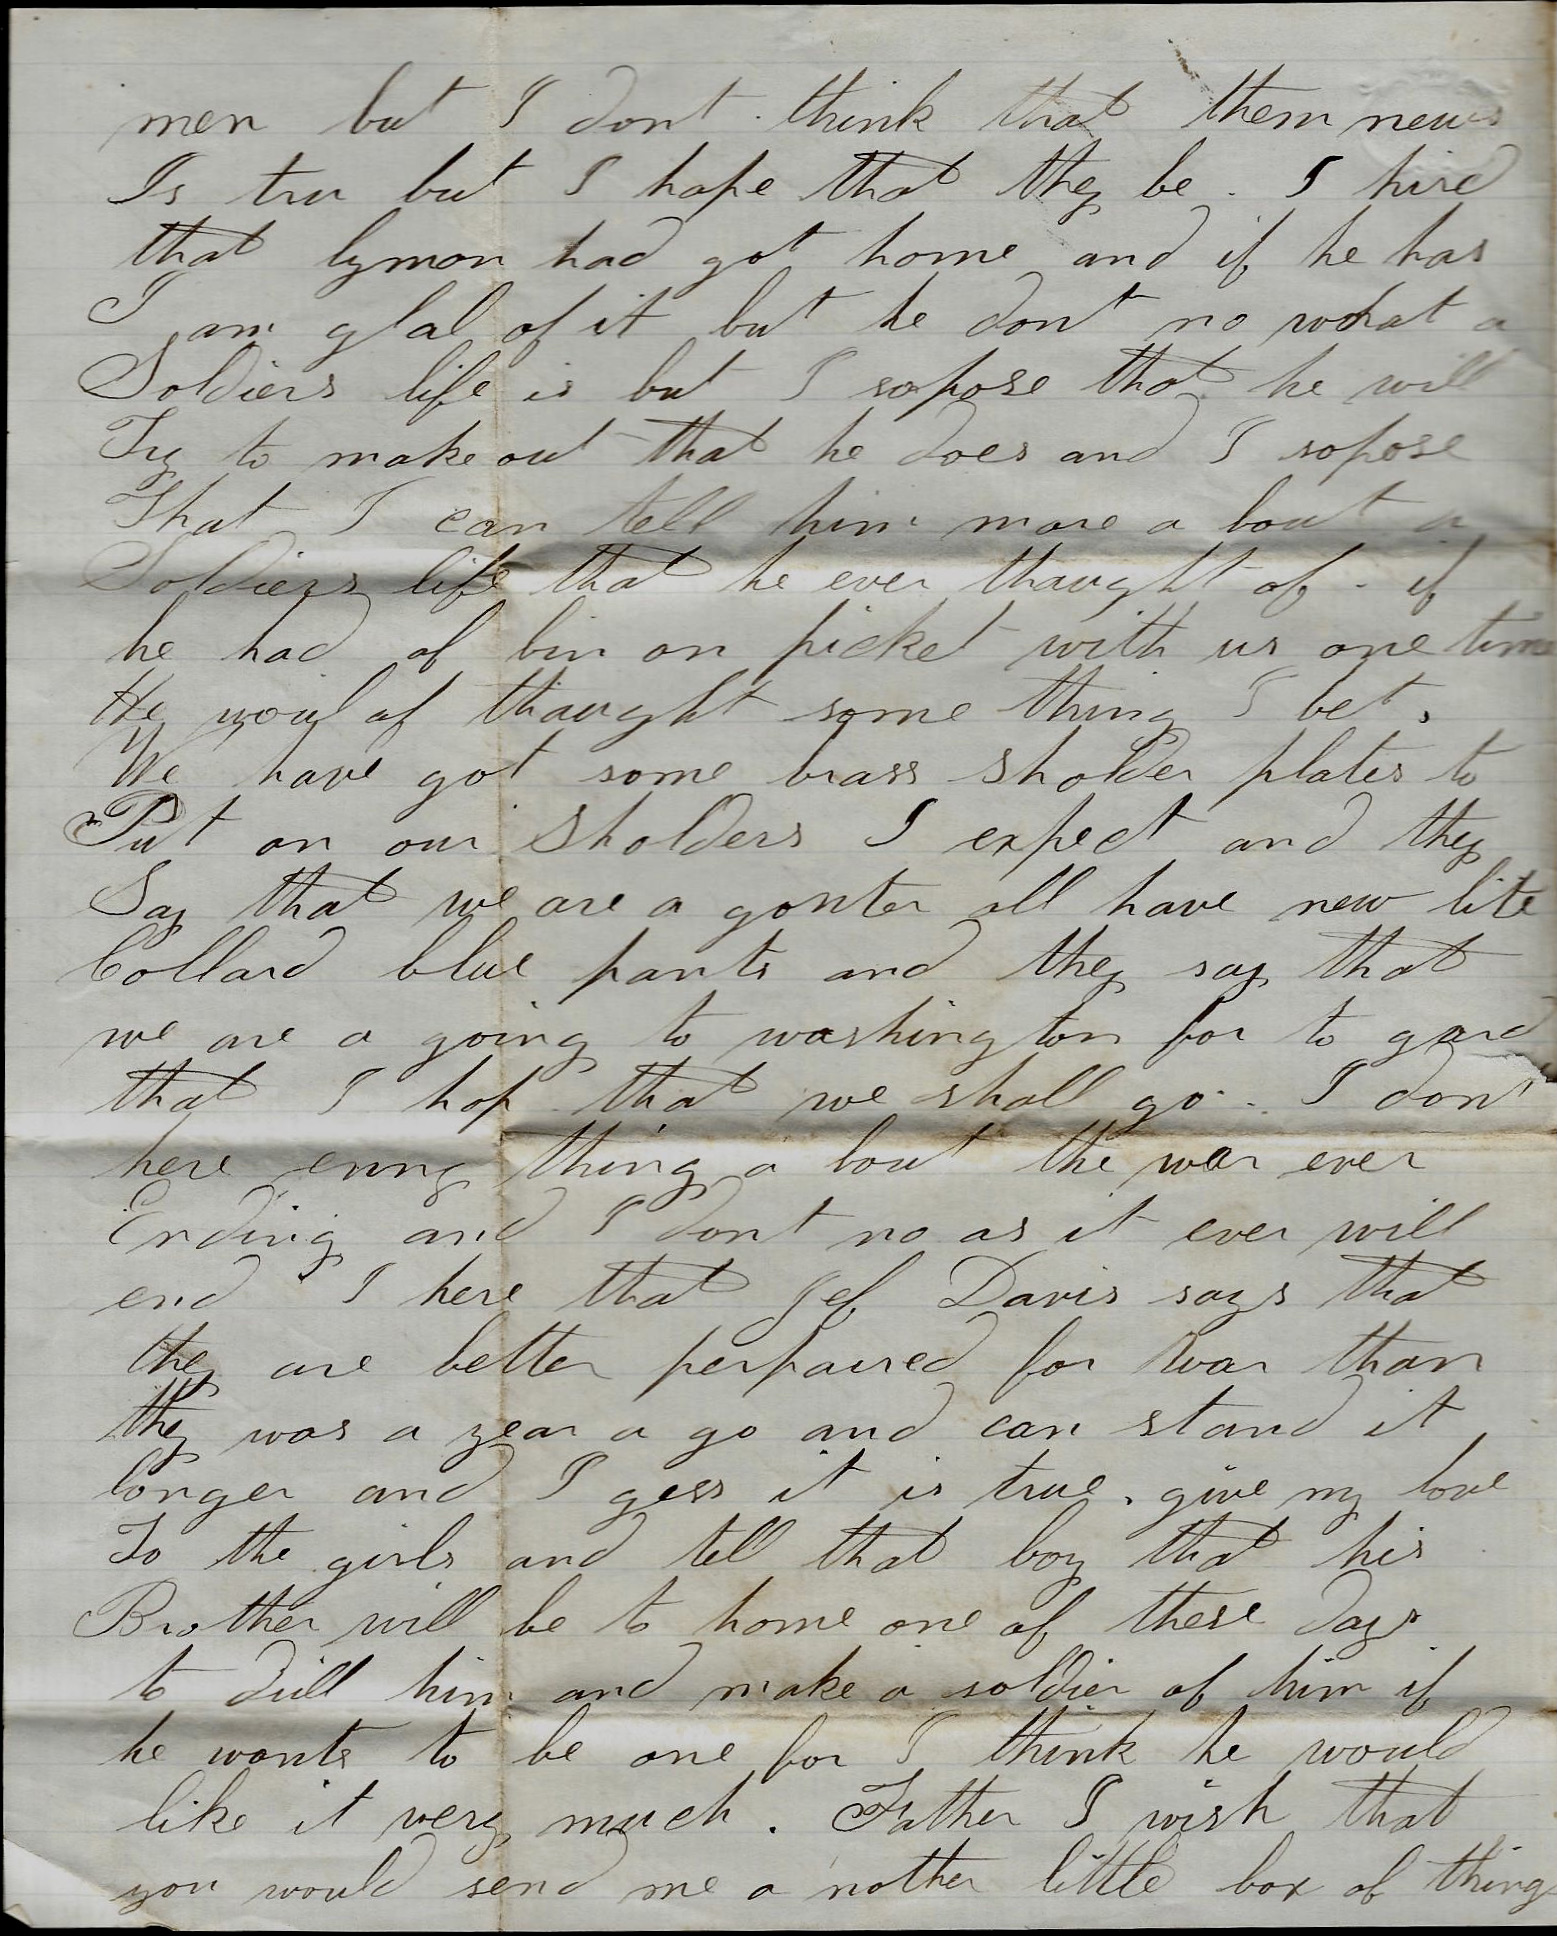 men but I dont think that them news
Is tru but I hope that they be. I hird
that lymon had got home and if he has
I am glad of it but he dont no what a
Soldiers life is but I sopose that he will
Try to make out that he does and I sopose
That I can tell him more a bout a
Soldiers life that he ever thaught of. if
he had of bin on picket with us one time
He woul of thaught some thing I bet.
We have got some brass sholder plates to
Put on our sholders I expect and they
Say that we are a gonter all have new lite
Collard blue pants and they say that
we are a going to washington for to gard
that I hop that we shall go. I dont
here enny thing a bout the war ever
Ending and I dont no as it ever will
end I here that Jef Davis says that
they are better perpaired for war than
they was a year a go and can stand it
longer and I gess it is true. give my love
To the girls and tell that boy that his
Brother will be to home one of these days
to drill him and make a soldier of him if
he wants to be one for I think he would
like it very much. Father I wish that
you would send me a nother little box of things